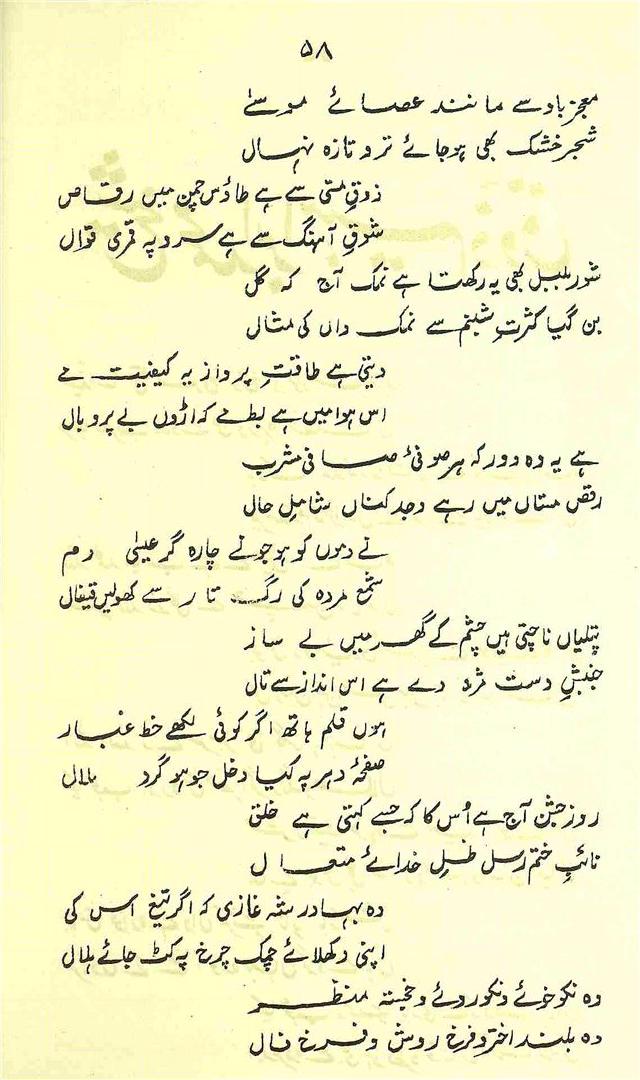 ۵۸
معجزِ باد سے مانند عصائے موسےٰ
شجر خشک بھی ہوجائے تر و تازہ نہال
ذوقِ مستی سے ہے طاؤس چمن میں رقاص
شوقِ آہنگ سے ہے سرو پہ قمری قوال
شور بلبل بھی یہ رکھتا ہے نمک آج کہ گل
بن گیا کثرتِ شبنم سے نمک داں کی مثال
دیتی ہے طاقتِ پرواز یہ کیفیت مے
اس ہوا میں ہے بطِ مے کہ اڑوں بے پر و بال
ہے یہ وہ دور کہ ہر صوفیٔ صافی مشرب
رقص مستاں میں رہے وجد کناں شاملِ حال
نے دموں کو ہو جو نے چارہ گر عیسیٰ دم
شمع مردہ کی رگ تار سے کھولیں قیفال
پتلیاں ناچتی ہیں چشم کے گھر میں بے ساز
جنبشِ دست مژہ دے ہے اس انداز سے تال
ہوں قلم ہاتھ اگر کوئی لکھے خط غبار
صفحۂ دہر پہ کیا دخل جو ہو گرد ملال
روز جشن آج ہے اُس کا کہ جسے کہتی ہے خلق
نائبِ ختم رسل ظلِ خدائے متعال
وہ بہادر شہ غازی کہ اگر تیغ اس کی
اپنی دکھلائے چمک چرخ پہ کٹ جائے ہلال
وہ نکو خوئے و نکو روئے و خجستہ منظر
وہ بلند اختر و فرخ روش و فرخ فال